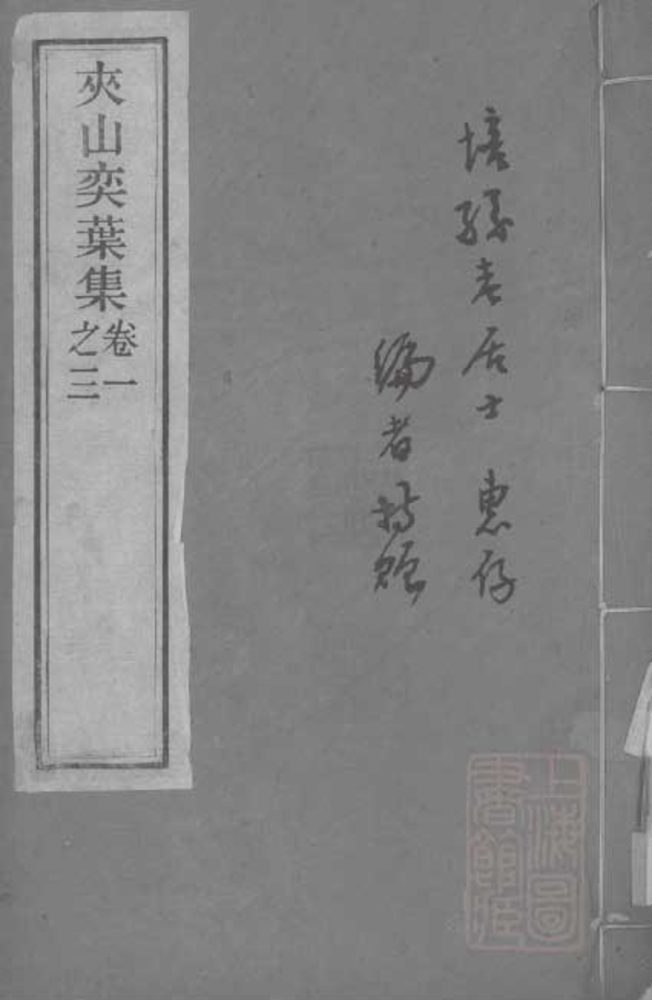 培孫老居士 惠存
編者持贈
夾山奕葉集
卷一
之三
上海圖
書館藏